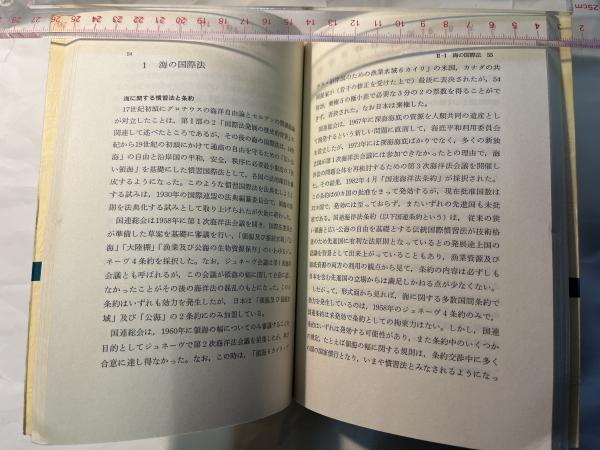 54
1 海の国際法
海に関する慣習法と条約
17世紀初頭にグロチウスの海洋自由論とセルデンの閉鎖海論
が対立したことは、第1部の2「国際法発展の歴史的背景」に
関連して述べたところであるが、その後の海の国際法は、18世
紀から19世紀の初頭にかけて通商の自由を守るための「広い公
海」の自由と沿岸国の平和、安全、秩序に必要最小限度の「狭
い領海」を基礎にした慣習国際法として、各国の法的確信を
成するようになった。このような慣習国際法を法典化しよう
する試みは、1930年の国際連盟の法典編纂委員会で、領海の
則を法典化する試みとして取り上げられたが失敗に終わった。
国連総会は1958年に第1次海洋法会議を開き、国際法委員会
が準備した草案を基礎に審議を行い、「領海及び接続水域」「公
海」「大陸棚」「漁業及び公海の生物資源保存」のいわゆるジュ
ネーヴ4条約を採択した。なお、ジュネーヴ会議は第1次海洋法
会議とも呼ばれるが、この会議が領海の幅に関して合意に達し
なかったことがその後の海洋法の混乱のもとになった。この4
条約はいずれも効力を発生したが、日本は「領海及び接続水
域」及び「公海」の2条約にのみ加盟している。
国連総会は、1960年に領海の幅についてのみ審議することを
目的としてジュネーヴで第2次海洋法会議を招集したが、再び
合意に達し得なかった。なお、この時は、「領海6カイリ・プ
II-1 海の国際法 55
のための漁業水域6カイリ」の米国、カナダの共
同提案が（若干の修正を受けた上で）最後に表決されたが、54
棄権5の極小差で必要な3分の2の票数を得ることがで
きず、否決された。なお日本は棄権した。
国連総会は、1967年に深海海底の資源を人類共同の遺産とし
て開発するという新しい問題に直面して、海底平和利用委員会
を設立したが、1973年には深海海底ばかりでなく、多くの新独
立国が第1次海洋法会議には参加できなかったとの理由で、海
洋法の問題全体を再検討するための第3次海洋法会議を開催し
た。その結果、1982年4月「国連海洋法条約」が採択された。
この条約は60カ国の批准をまって発効するが、現在批准国数は
カ国で、発効には至っておらず、またいずれの先進国も未批
准である。国連海洋法条約（以下国連条約という）は、従来の狭
い領海と広い公海の自由を基礎とする伝統国際慣習法が技術格
差のため先進国に有利な法原則となっているとの発展途上国の
認識を背景として出来上がっていることもあり、漁業資源及び
海底資源の両方の利用の観点から見て、条約の内容は必ずしも
日本を含む先進国の立場からは満足しかねる点が少なくない。
したがって、形式面から見れば、海に関する多数国間条約で
効力を発生しているのは、1958年のジュネーヴ4条約のみで、
国連条約は未発効で条約としての拘束力はない。しかし、国連
条約はいずれは発効する可能性があり、また条約中のいくつか
の規定、たとえば領海の幅に関する規則は、条約交渉中に多く
の国の国家慣行となり、いまや慣習法とみなされるようになっ